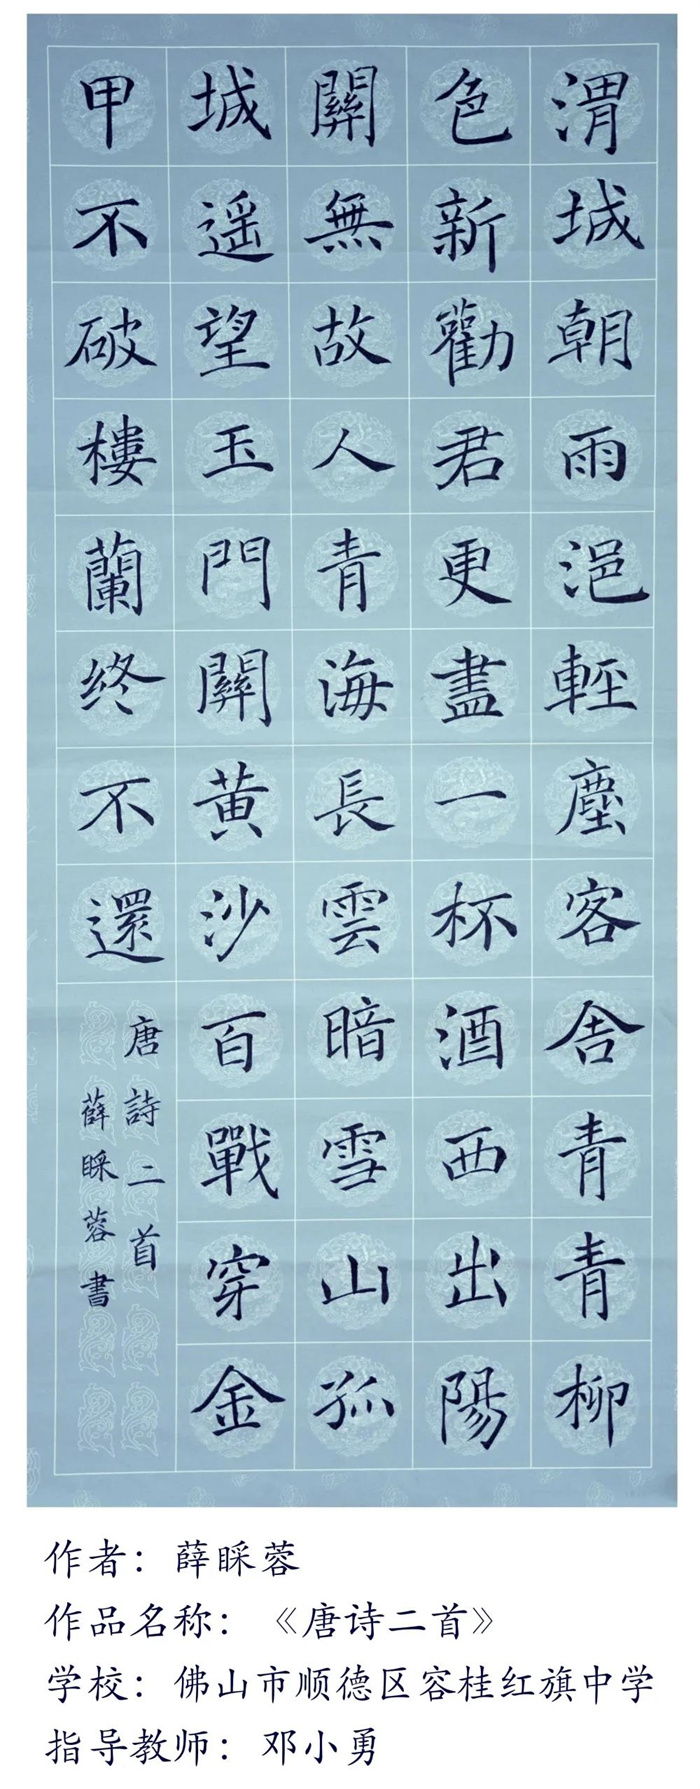 渭城朝雨浥輕塵客舍青青柳
色新勸君更盡一杯酒西出陽
關無故人青海長雲暗雪山孤
城遥望玉門關黄沙百戰穿金
甲不破樓蘭终不還
唐詩二首
薛睬蓉書
作者：薛睬蓉
作品名称：《唐诗二首》
学校：佛山市顺德区容桂红旗中学
指导教师：邓小勇